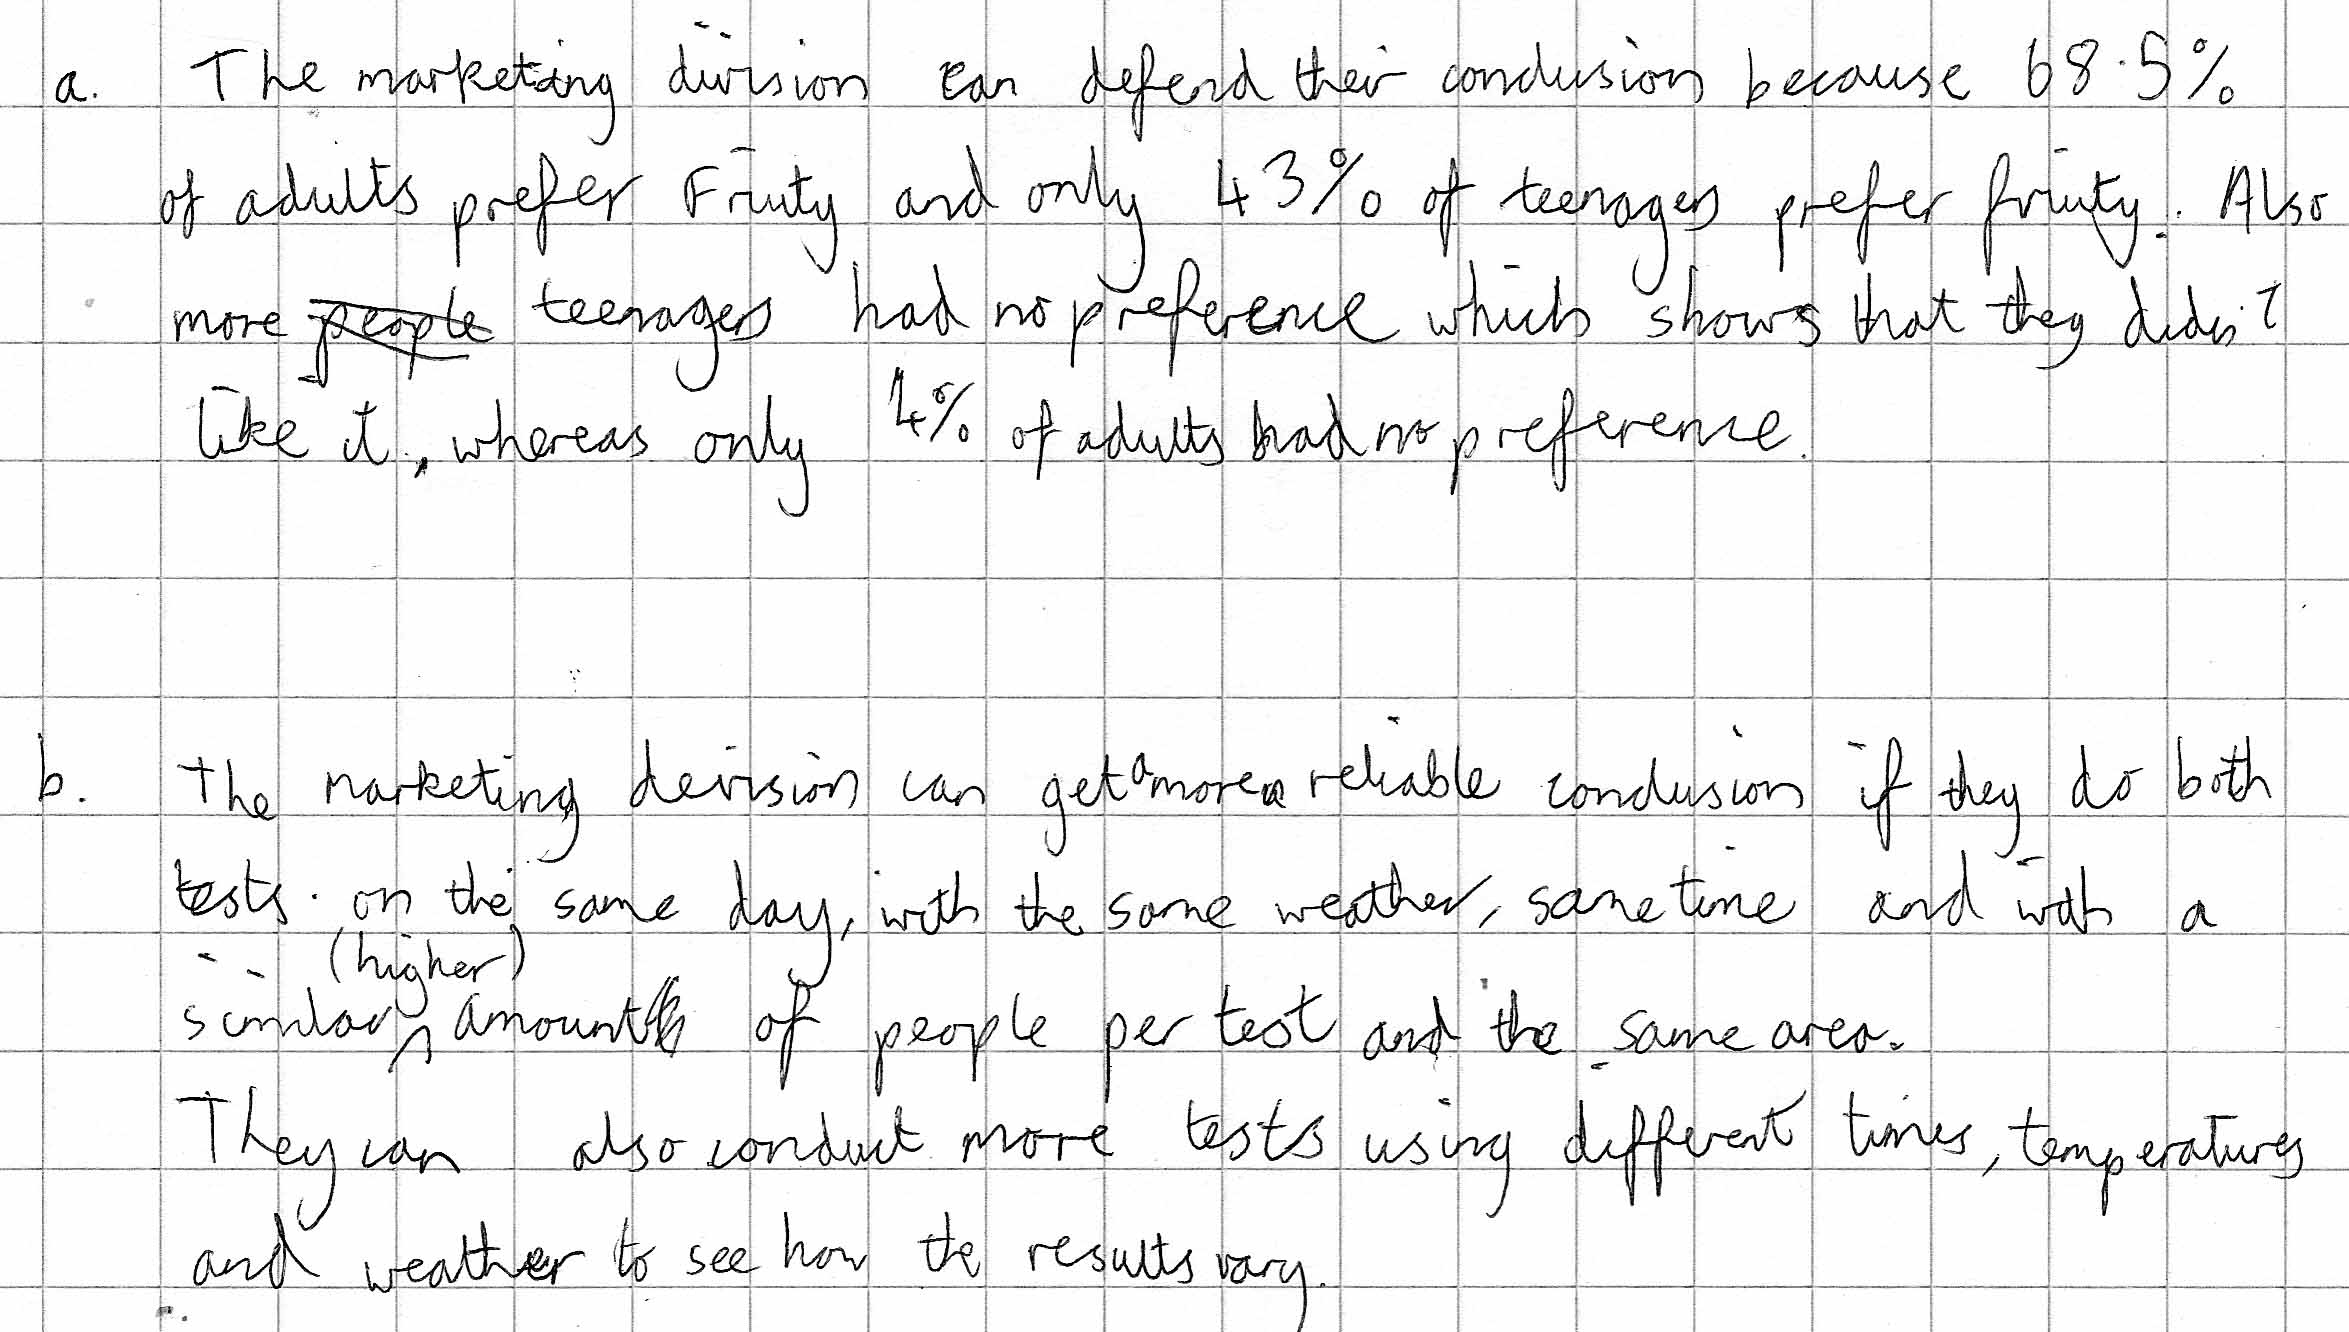 a. The marketing division can defend their conclusion because 68.5%
of adults prefer Fruity and only 43% of teenagers prefer fruity. Also
more people teenagers had no preference which shows that they didn't
like it, whereas only 4% of adults had no preference.
b. The marketing devision can get a more reliable conclusion if they do both
tests on the same day, with the same weather, same time and with a
(higher)
similar amount of people per test and the same area.
They can also conduct more tests using different times, temperatures
and weather to see how the results vary.